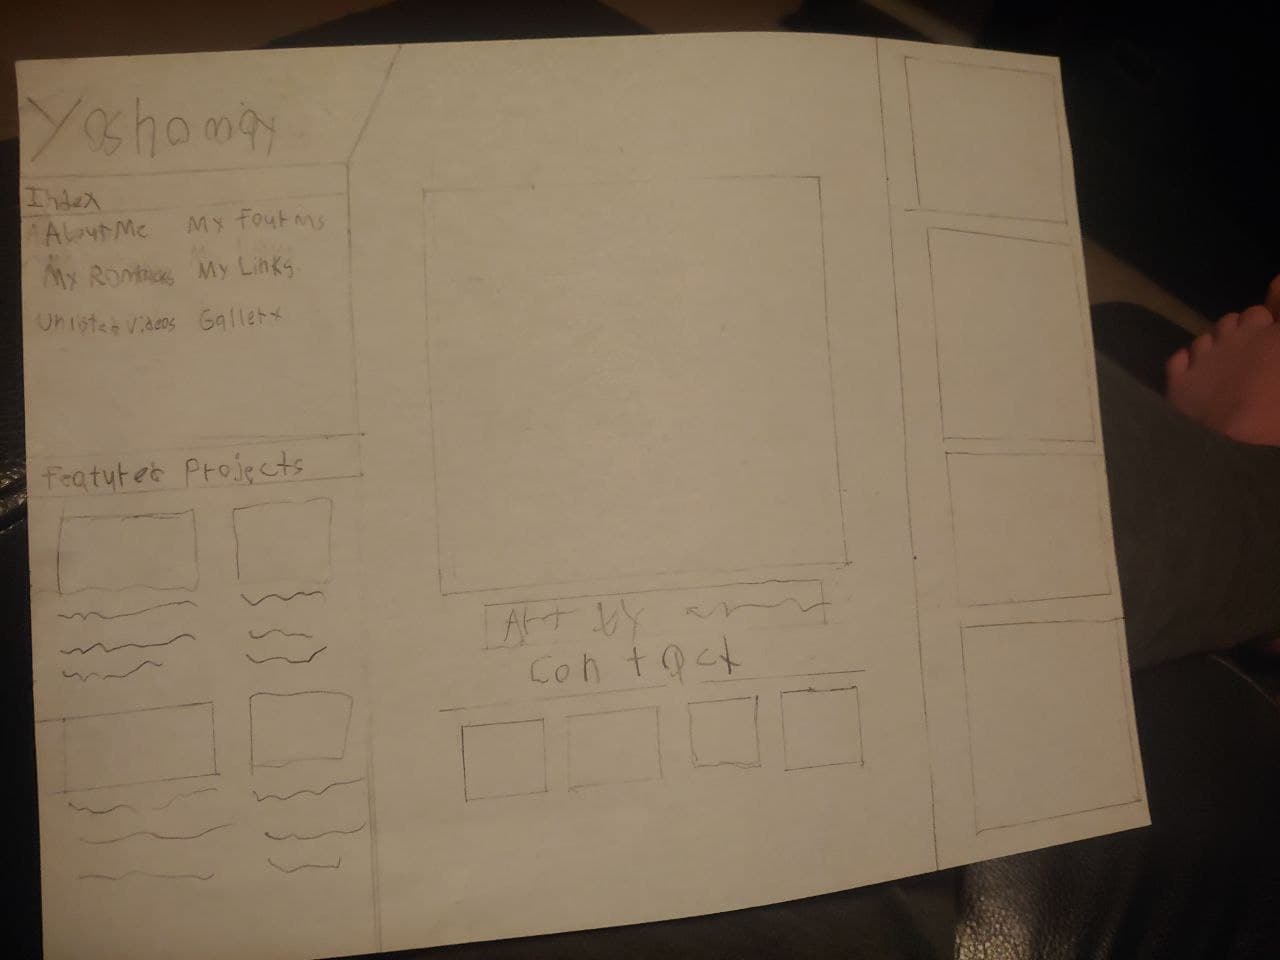 Yoshomay
Index
About Me My Fourms
My My Links
Unlisted Videos Gallery
Featured Projects
Art by
Contact